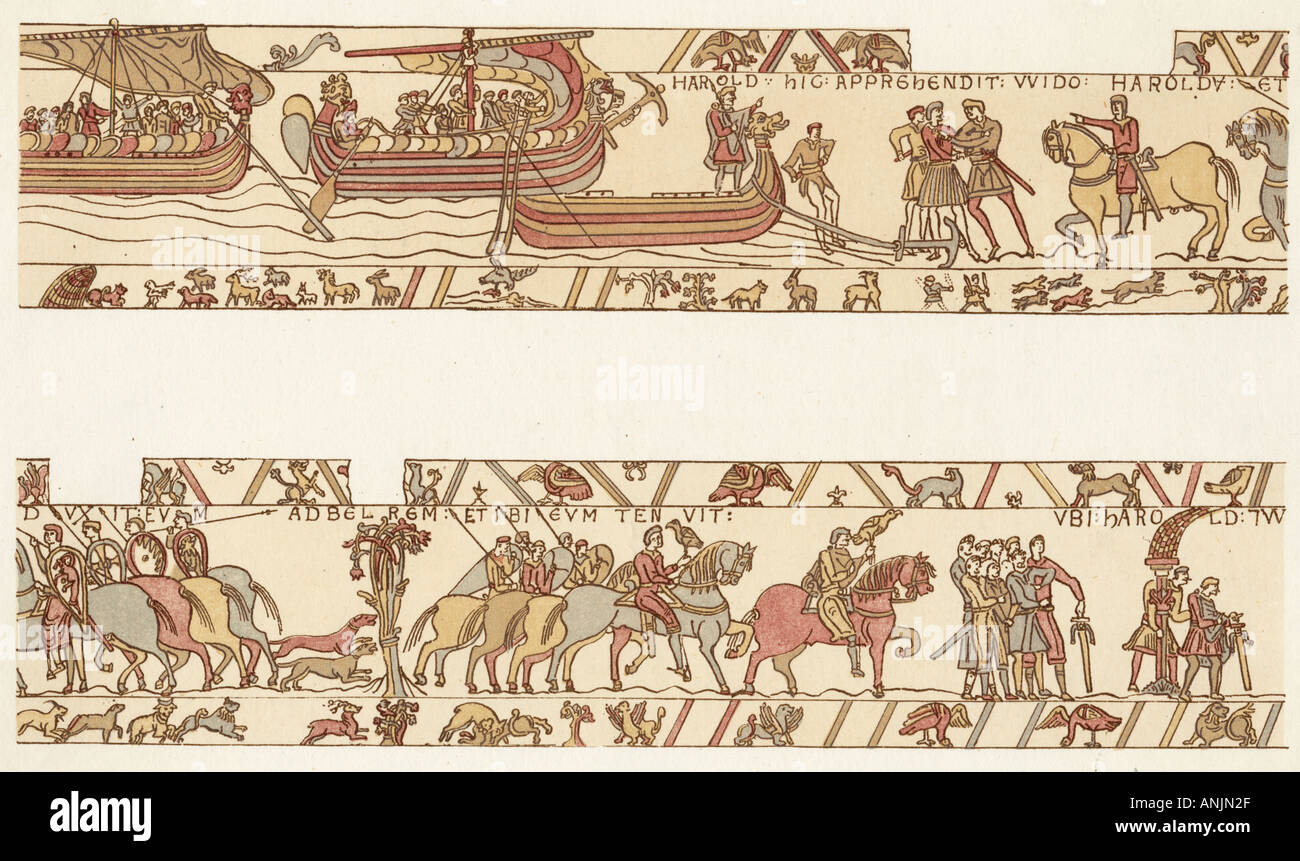 HAROLD: hIC: APPREhENDIT: VVIDO: HAROLDV: ET
DVXIT: EVM AD BEL REM: ET IBI EVM TENVIT: VBI: hAROLD: 7W
alamy
Image ID: ANJN2F
www.alamy.com